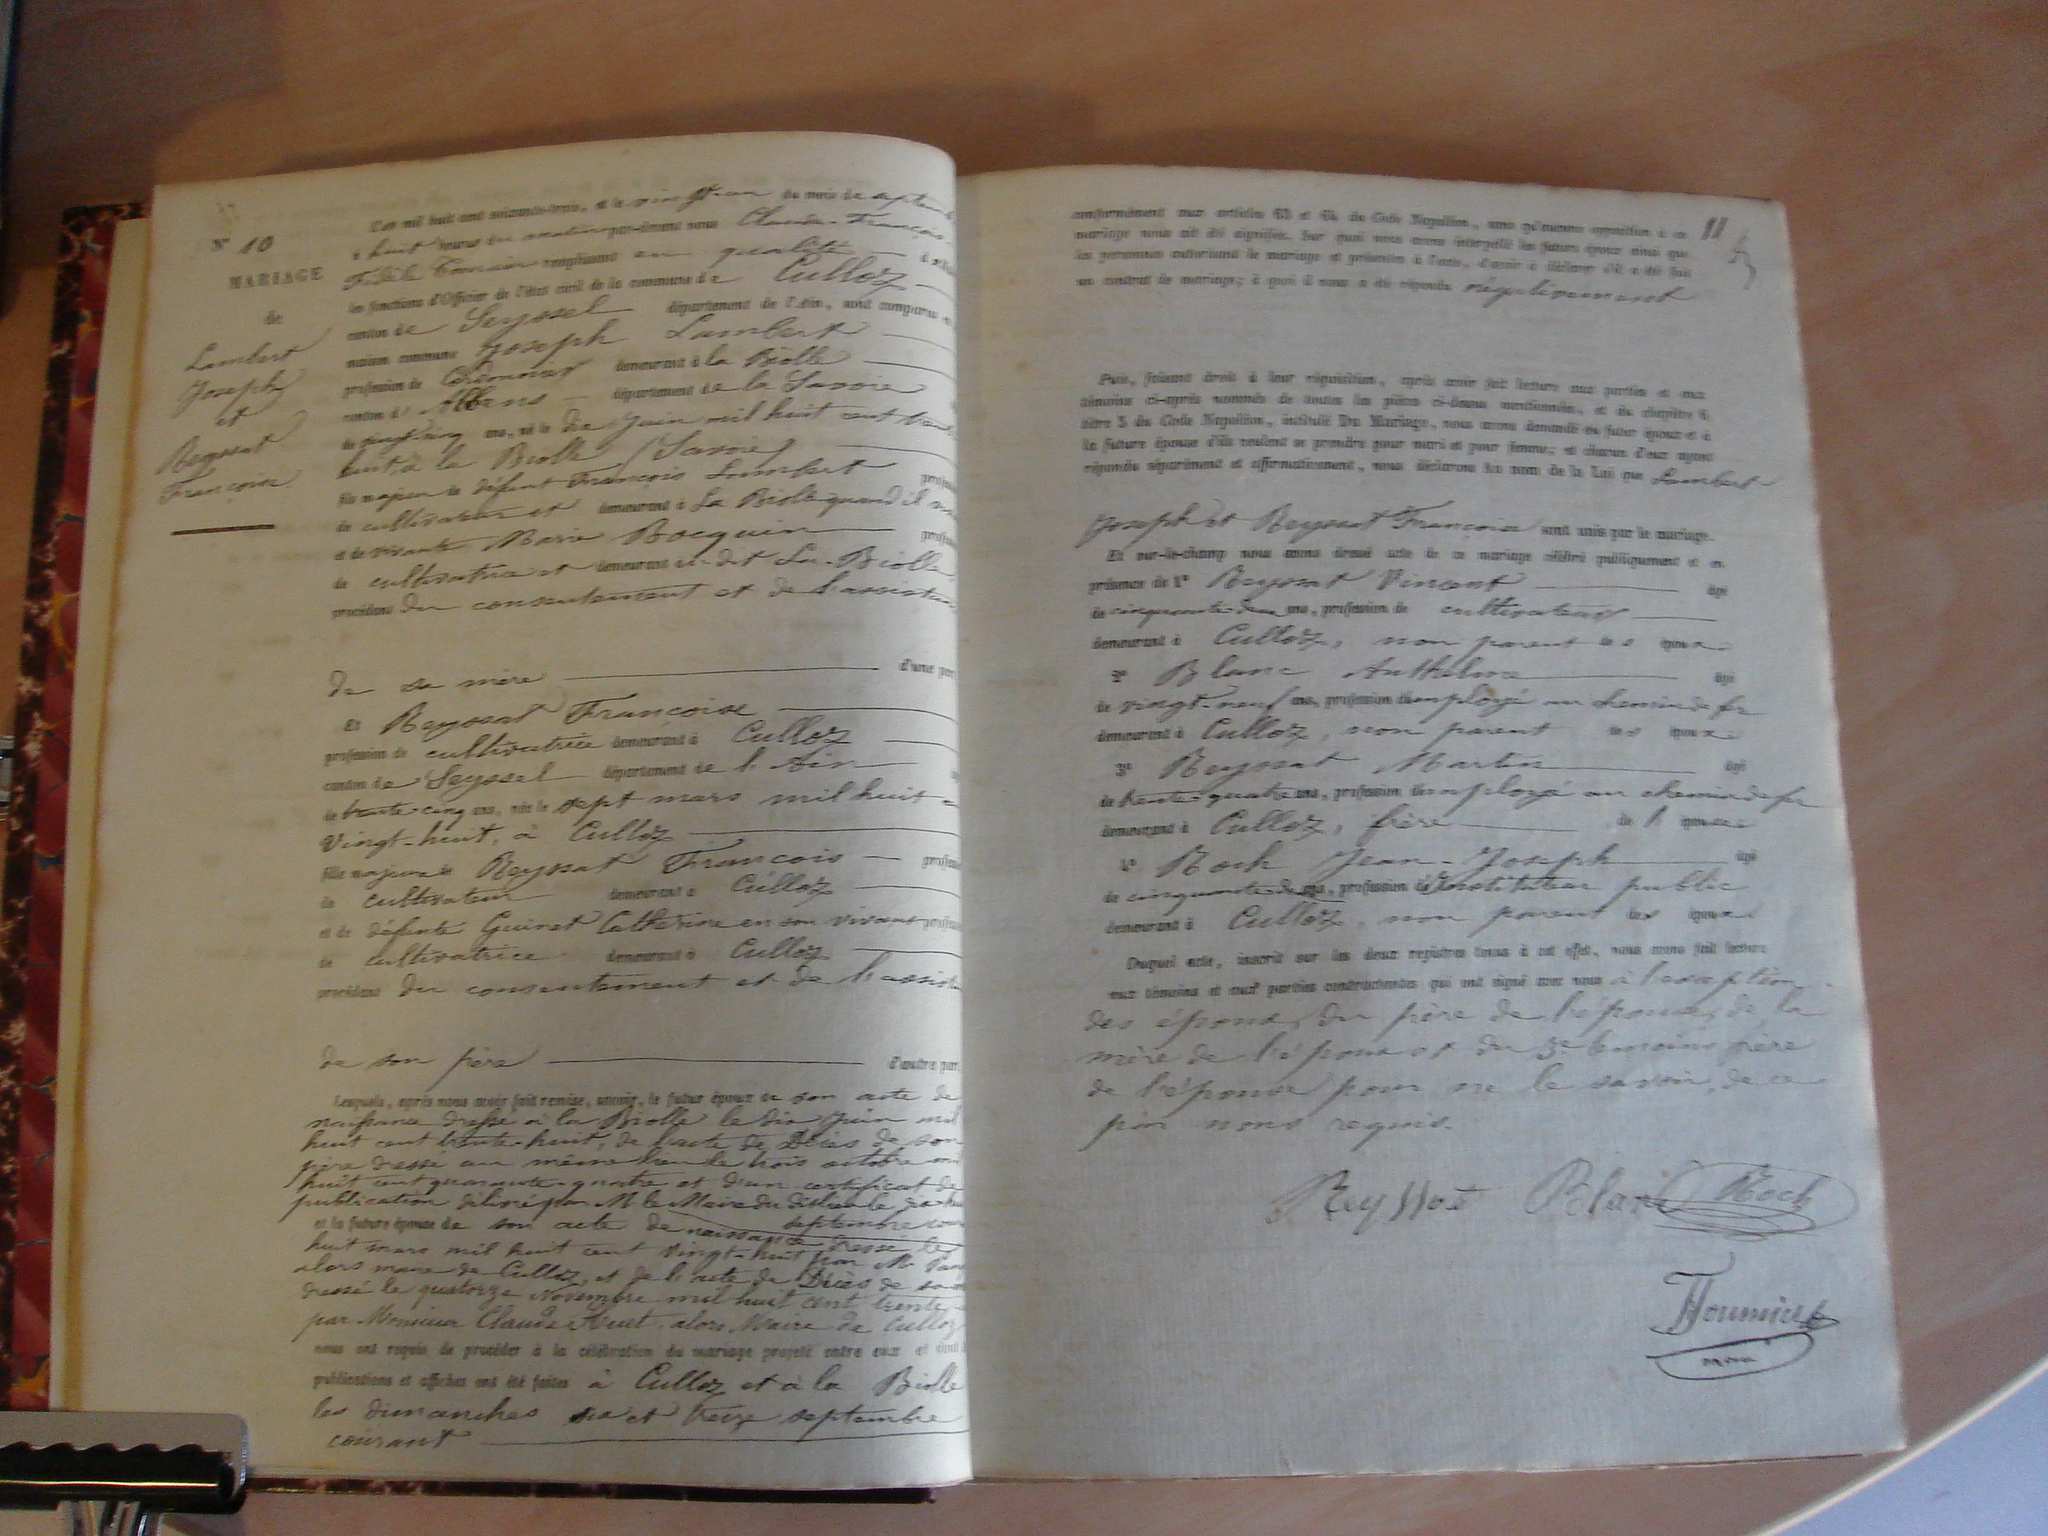 N° 10
MARIAGE
de
Lambert
Joseph
et
Reyssat
Françoise
L'an mil huit cent soixante-trois, et le vingt-un du mois de septemb
à huit heures du matin par-devant nous Claude-François
remplissant en qualité
les fonctions d'Officier de l'état civil de la commune de Culloz
canton de Seyssel département de l'Ain, sont comparus en
maison commune Joseph Lambert
profession de Cordonnier demeurant à la Biolle
canton d' Albens département de la Savoie
de vingt cinq ans, né le dix Juin mil huit cent trente
huit, à la Biolle (Savoie)
fils majeur de défunt François Lambert profess
de cultivateur et demeurant à La Biolle quand il v
et de vivante Marie Bocquin profess
de cultivatrice et demeurant au dit La Biolle
procédant du consentement et de l'assistan
de sa mère d'une par
Et Reyssat Françoise
profession de cultivatrice demeurant à Culloz
canton de Seyssel département de l'Ain
de trente-cinq ans, née le sept mars mil huit c
Vingt-huit, à Culloz
fille majeure de Reyssat François profess
de cultivateur demeurant à Culloz
et de défunte Guinet Catherine en son vivant profess
de cultivatrice demeurant à Culloz
procédant du consentement et de l'assista
de son père d'autre part.
Lesquels, après nous avoir fait remise, savoir, le futur époux de son acte de
naissance dressé à la Biolle le dix Juin mil
huit cent trente-huit, de l'acte de Décès de son
père dressé au même lieu le trois octobre mil
huit cent quarante-quatre et d'un certificat de
publication délivré par M. le Maire du dit lieu le dix-huit
septembre cour
et la future épouse de son acte de naissance dressé le
huit mars mil huit cent vingt-huit par Mr
alors maire de Culloz, et de l'acte de Décès de sa m
dressé le quatorze Novembre mil huit cent trente
par Monsieur Claude Huet alors Maire de Culloz
nous ont requis de procéder à la célébration du mariage projeté entre eux et dont l
publications et affiches ont été faites à Culloz et à la Biolle
les dimanches six et treize septembre
courant
11
conformément aux articles 63 et 64 du Code Napoléon, sans qu'aucune opposition à ce
mariage nous ait été signifiée. Sur quoi nous avons interpellé les futurs époux ainsi que
les personnes autorisant le mariage et présentes à l'acte, d'avoir à déclarer s'il a été fait
un contrat de mariage; à quoi il nous a été répondu négativement
Puis, faisant droit à leur réquisition, après avoir fait lecture aux parties et aux
témoins ci-après nommés de toutes les pièces ci-dessus mentionnées, et du chapitre 6,
titre 5 du Code Napoléon, intitulé Du Mariage, nous avons demandé au futur époux et à
la future épouse s'ils veulent se prendre pour mari et pour femme; et chacun d'eux ayant
répondu séparément et affirmativement, nous déclarons au nom de la Loi que Lambert
Joseph et Reyssat Françoise sont unis par le mariage.
Et sur-le-champ nous avons dressé acte de ce mariage célébré publiquement et en
présence de 1° Reyssat Vincent âgé
de cinquante-deux ans, profession de cultivateur
demeurant à Culloz, non parent des époux.
2° Blanc Anthelme âgé
de vingt-neuf ans, profession d'employé au chemin de fer
demeurant à Culloz, non parent des époux.
3° Reyssat Martin âgé
de trente-quatre ans, profession d'employé au chemin de fer
demeurant à Culloz, frère de l'épouse
4° Roch Jean-Joseph âgé
de cinquante-deux ans, profession d'Instituteur public
demeurant à Culloz, non parent des époux.
Duquel acte, inscrit sur les deux registres tenus à cet effet, nous avons fait lecture
aux témoins et aux parties contractantes qui ont signé avec nous à l'exception
des époux, du père de l'épouse, de la
mère de l'époux et du 3e témoins frère
de l'épouse pour ne le savoir, de ce
par nous requis.
Reyssat Blanc Roch